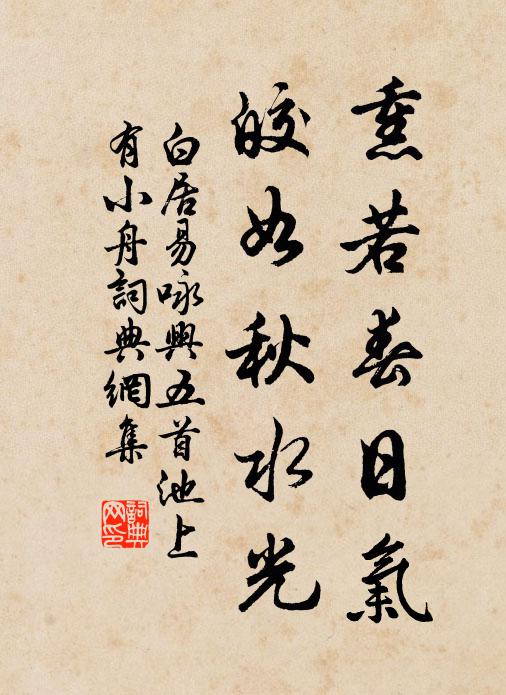 熏若春日氣
皎如秋水光
白居易咏興五首池上
有小舟詞典網集
詞典
网印